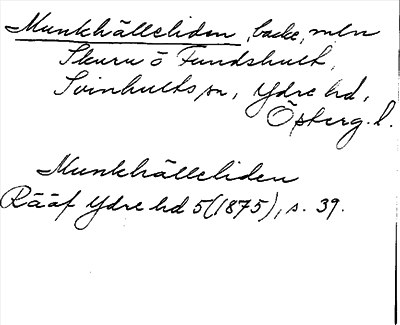 Munkhälleliden, backe, mln
Skuru o Fundshult,
Svinhults sn, Ydre hd,
Östergl.
Munkhälleliden
Rääf Ydre hd 5(1875), s. 39.